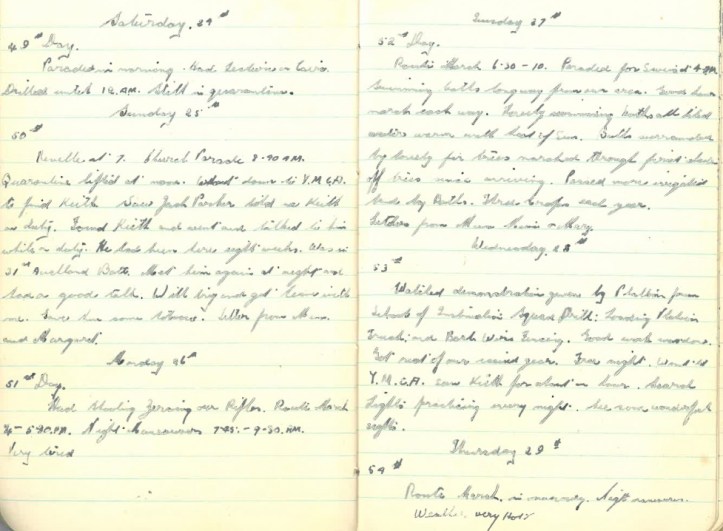 Saturday. 24th
49th Day.
Paraded in morning. Had Lectures in Cairo.
Drilled until 12. AM. Still in quarantine.
Sunday 25th
50th
Reveille at 7. Church Parade 8-90 AM.
Quarantine lifted at noon. Went down to Y.M.C.A.
to find Keith Saw Jack Parker told me Keith
on duty. Found Keith and went and talked to him
while on duty. He has been here eight weeks. Was in
31st Auckland Batt. Met him again at night and
had a good talk. Will try and get leave with
me. Gave him some tobacco. Letter from Mum.
and Margaret.
Monday 26th
51st Day.
Had Shooting Zeroing our Rifles. Route March
4 - 5.30. P.M. Night Manoeuvres 7-25. - 9-30. AM.
Very tired
Tuesday 27th
52nd Day.
Route March 6-30 - 10. Paraded for Swim at 4 PM
Swimming baths long way from our area. Good hour
march each way. Lovely swimming baths all tiled
water warm with heat of Sun. Baths surrounded
by lovely fir trees marched through
of trees arriving. Passed more irrigated
land by Baths. Three crops each year.
Letters from Mum Mary.
Wednesday. 28th
53
Watched demonstration given by Platoon from
School of Instruction Squad Drill: Loading Platoon
Truck, and Barb Wire Fencing. Good work
Got rest of our gear. Free night. Went to
Y.M.C.A. saw Keith for about an hour. Search
Lights practicing every night. See some wonderful
sights.
Thursday 29th
54th
Route March. in morning. Night manouvres.
Weather very Hot